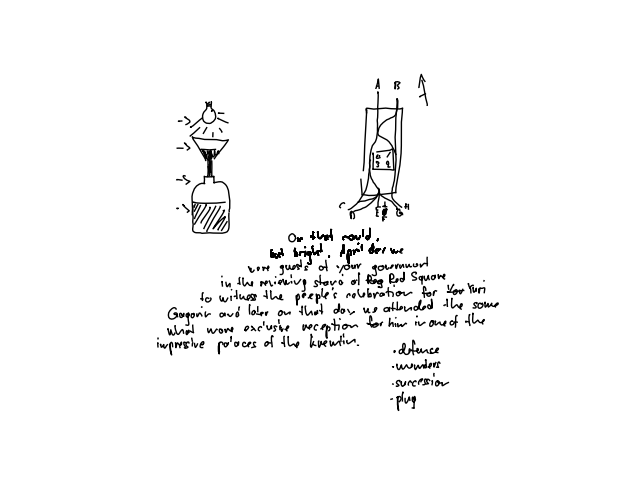 A B
C D E F G H
On that mould,
but bright, April day we
were guests of your government
in the reviewing stand of Red Square
to witness the people's celebration for Yuri
Gagarin and later on that day we attended the some
what more exclusive reception for him in one of the
impressive palaces of the kremlin.
• defence
• wonders
• succession
• plug